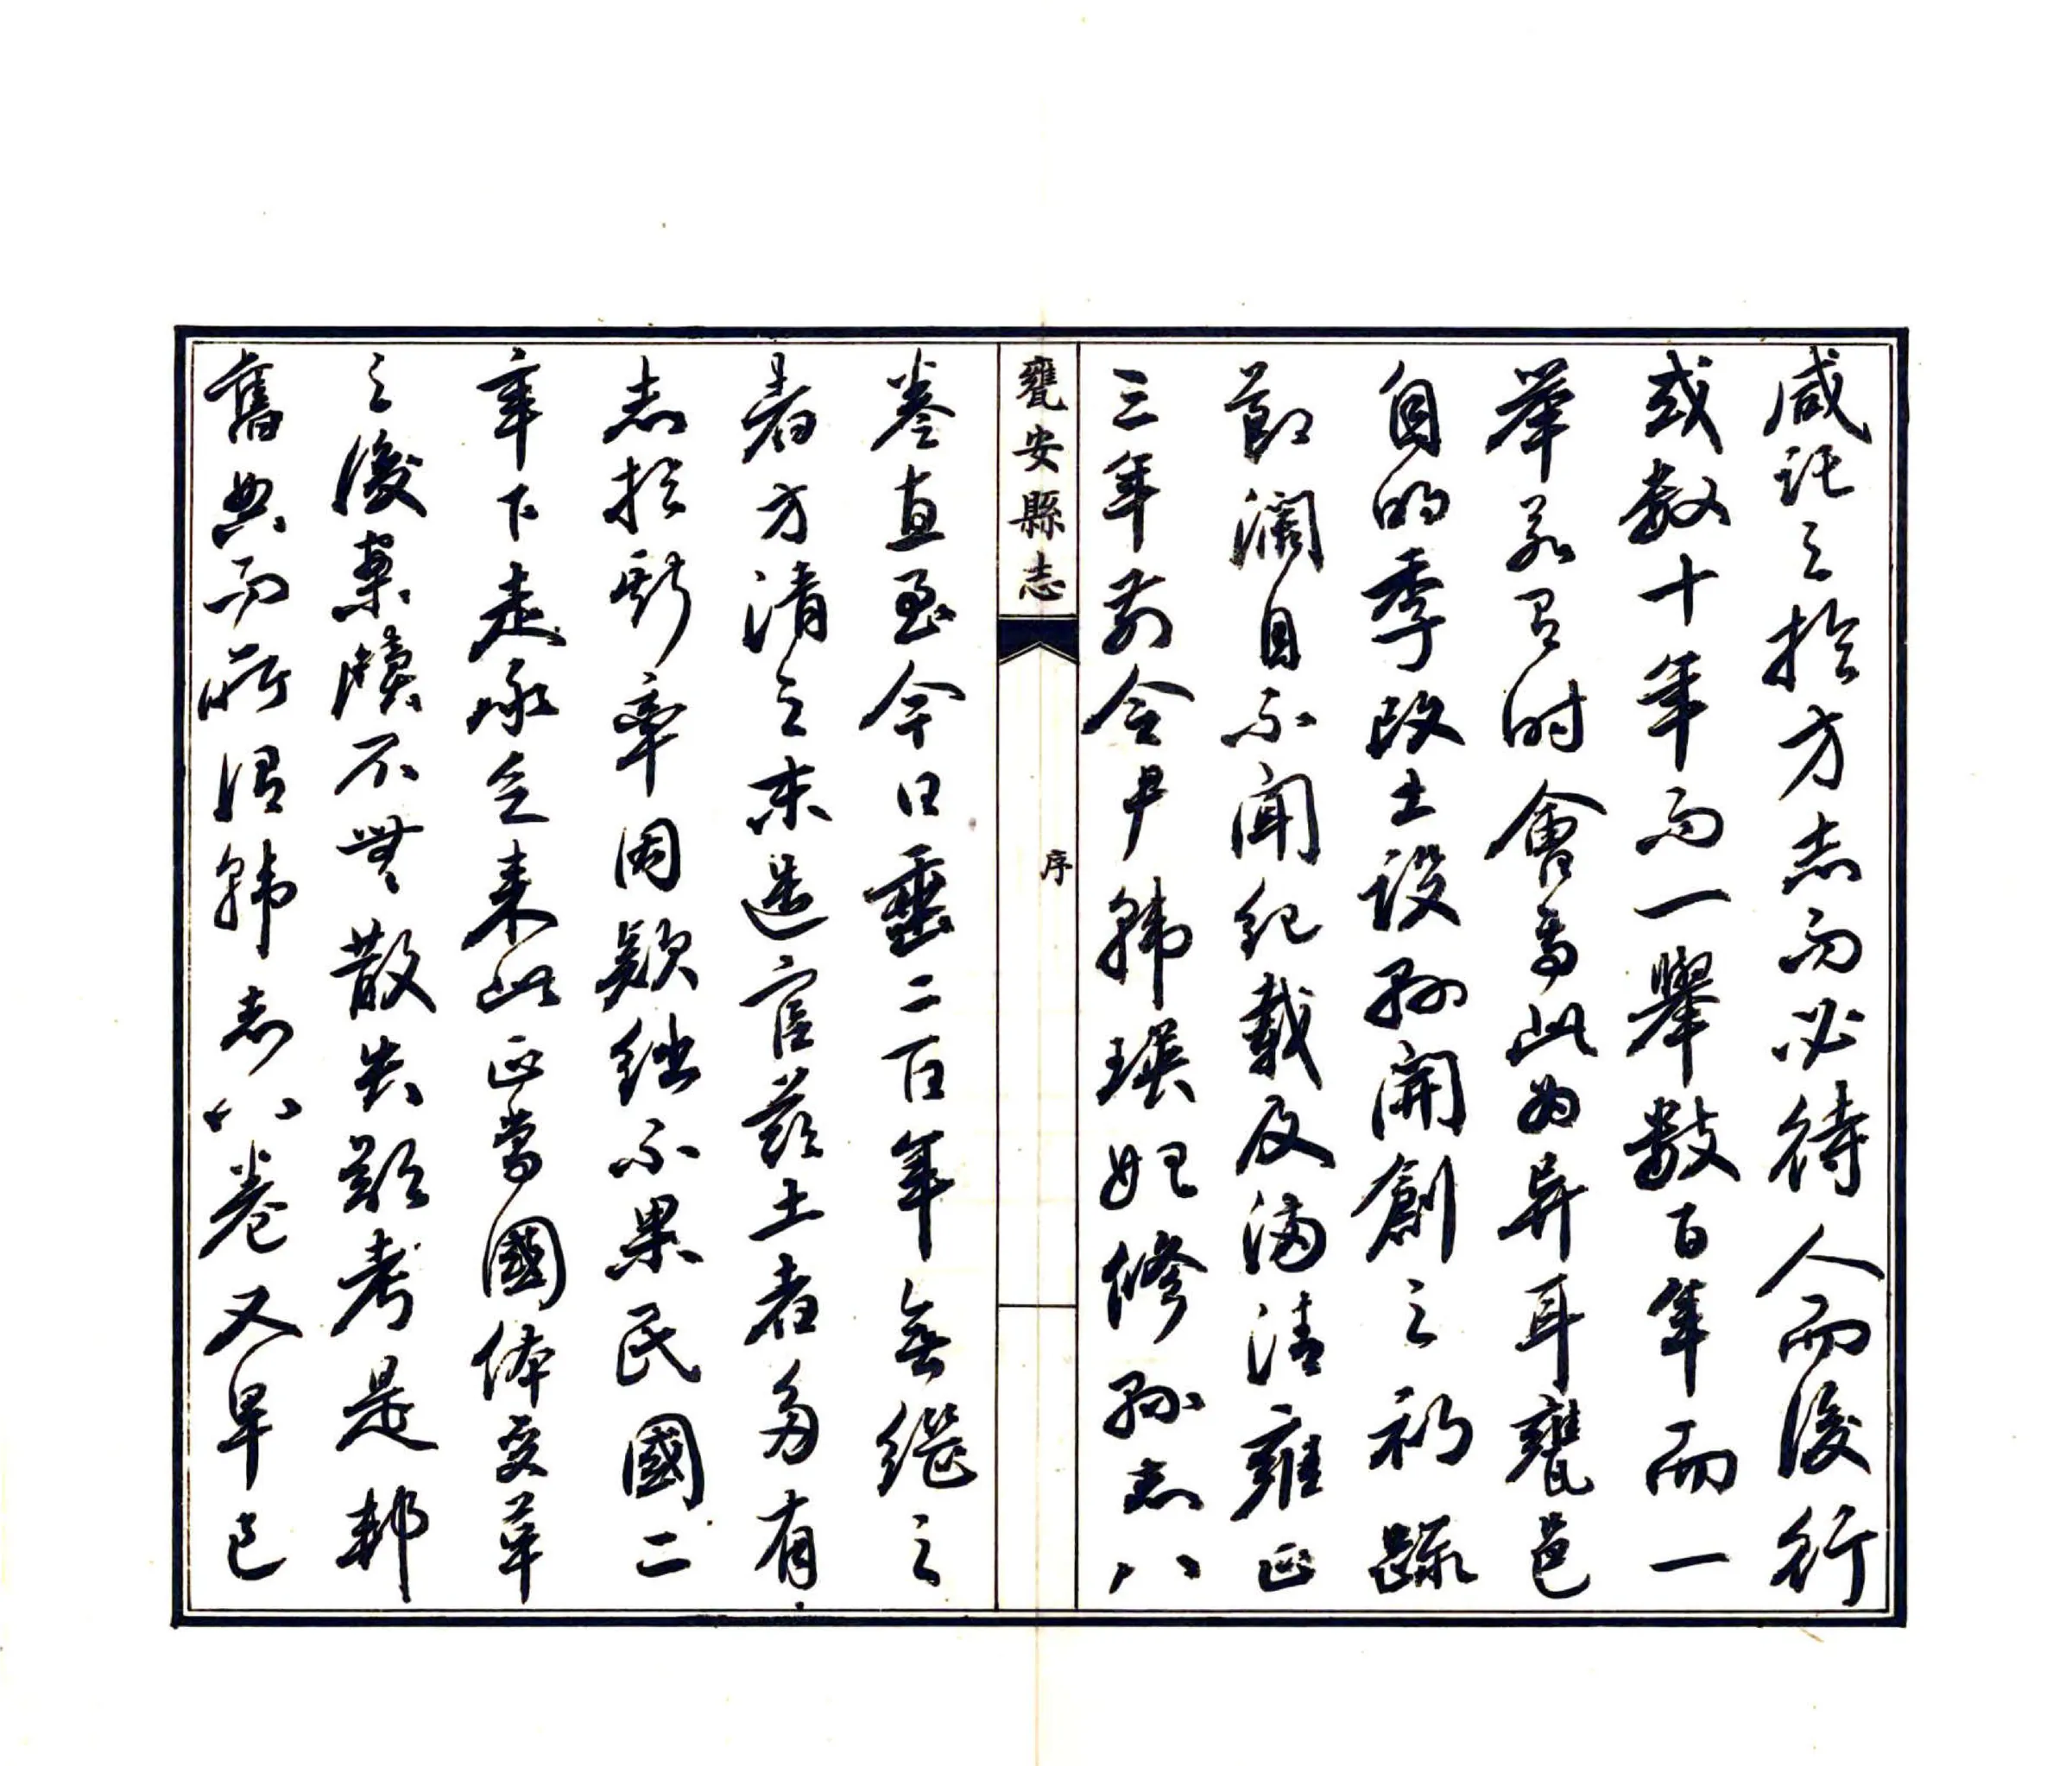 咸託之於方志而必待人而後行
或数十年而一舉數百年而一
舉若有时會焉此為异耳甕邑
自明季改土設縣開創之初疏
節濶目不聞紀載及滿清雍正
三年前令尹韩瑛始修縣志八
甕安縣志
序
卷直至今日垂二百年無继之
者方清之末造官兹土者多有
志於斯率因款绌不果民國二
年下走承乏来此正當國体变革
之後案牘不無散失難考是邦
舊典而所謂韩志八卷又早已